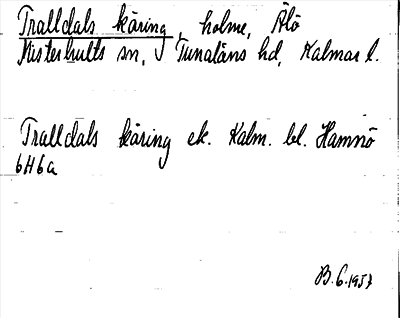 Tralldals käring, holme, Älö
Misterhults sn, Tunaläns hd, Kalmar l.
Tralldals käring ek. Kalm. bl. Hamnö
6H6a
B.G. 1957